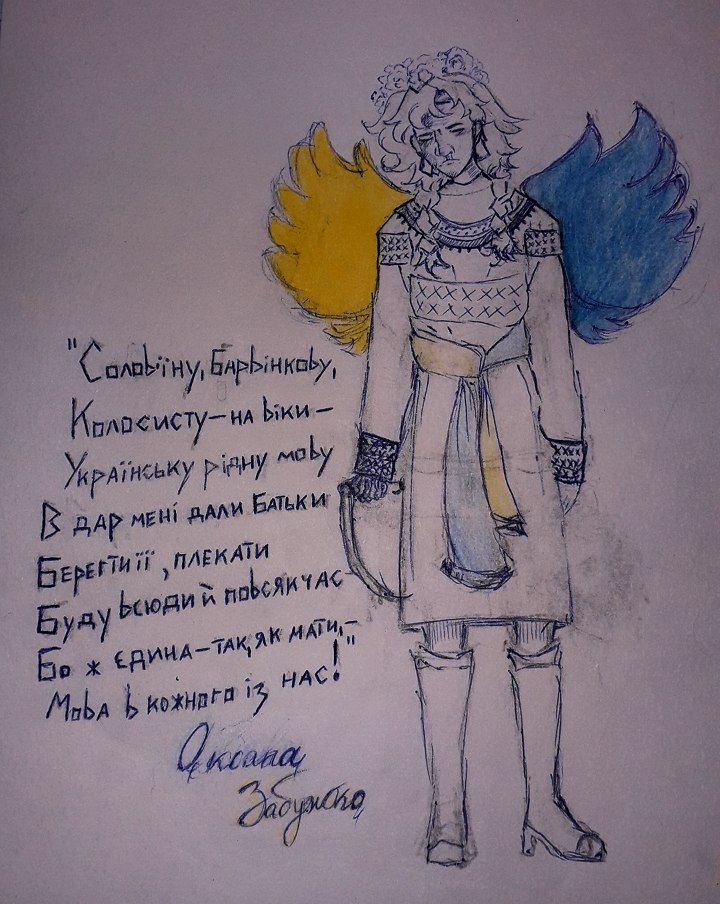 "Солов'їну, Барвінкову,
Колосисту - на віки -
Українську рідну мову
В дар мені дали Батьки
Берегти її, плекати
Буду всюди й повсякчас -
Бо ж єдина - так, як мати, -
Мова в кожного із нас!"
Оксана
Забужко